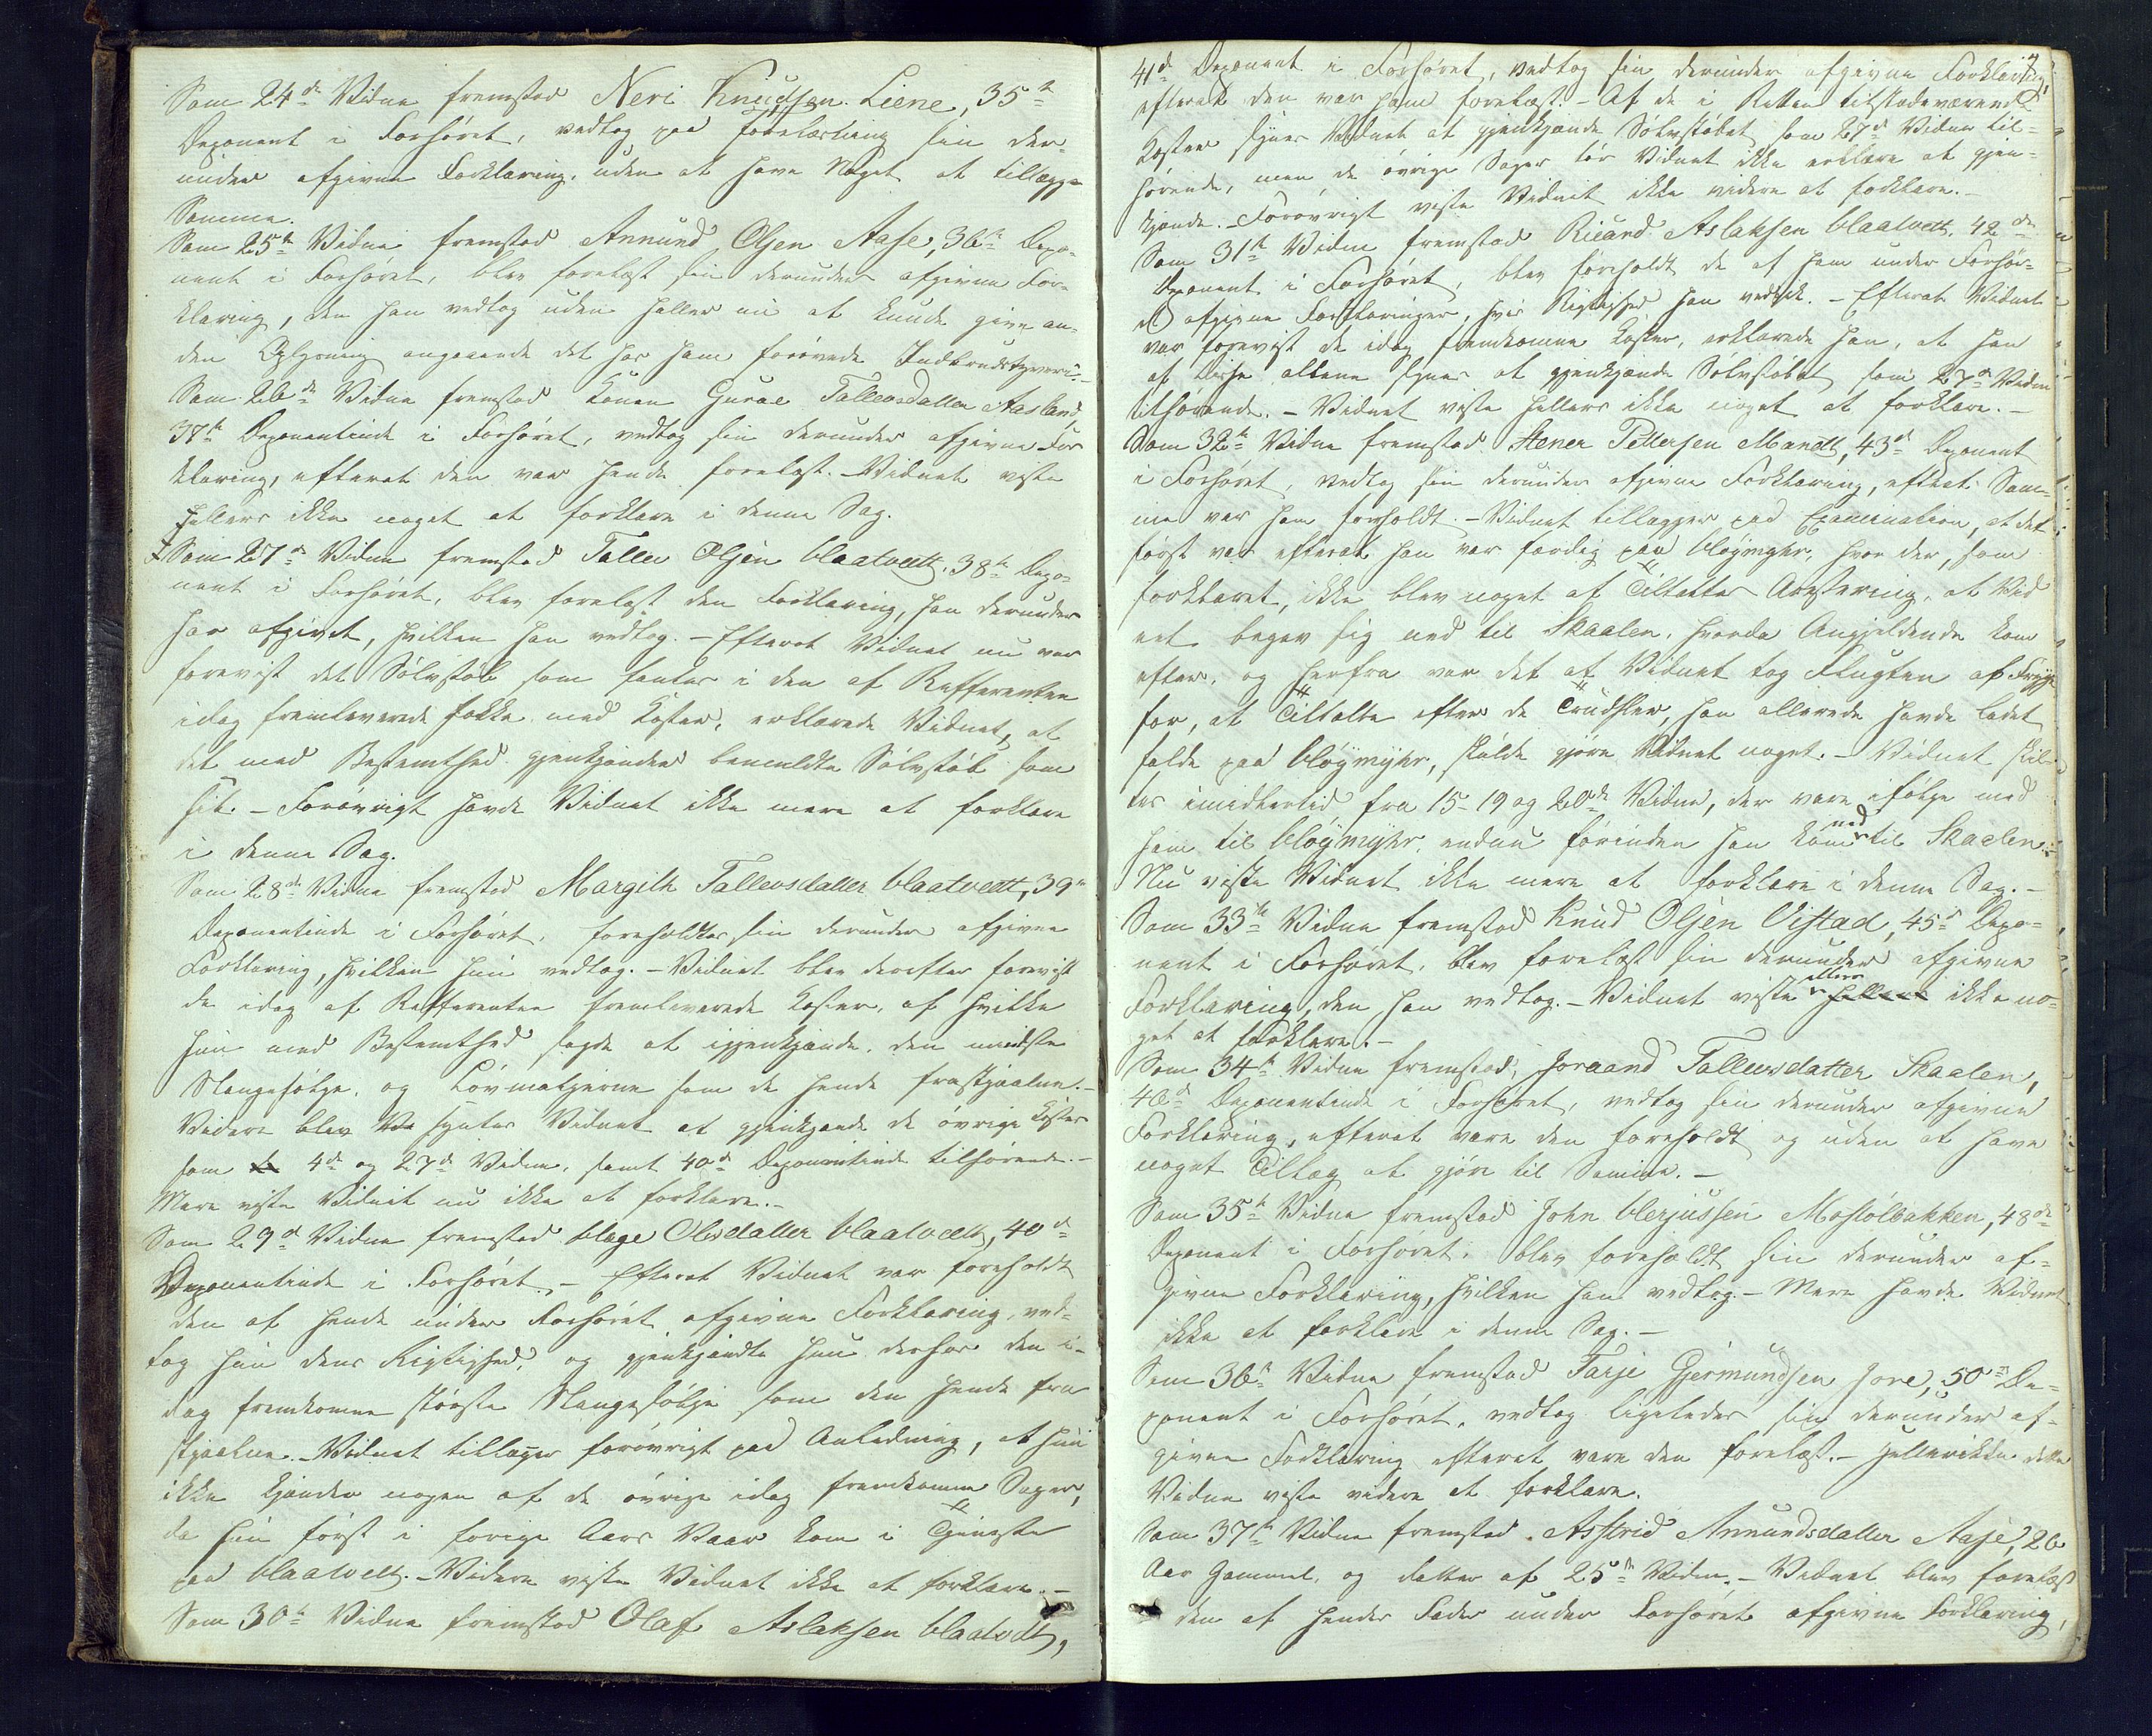 Som 24de Vidne fremstod Neri Knudsen Liene, 35te
Deponent i Forhøret, vedtog paa Forelæsning sin der-
under afgivne Forklaring, uden at have Noget at tillægge
Samme.
Som 25te Vidne fremstod Annund Olsen Aase, 36te Depo-
nent i Forhøret, blev forelæst sin derunder afgivne For-
klaring, den han vedtog uden heller nu at kunde give an-
den Oplysning angaaende det hos ham forøvede Indbrudstyveri.-
Som 26de Vidne fremstod Konen Guroe Tallevsdatter Aasland,
37te Deponentinde i Forhøret, vedtog sin derunder afgivne For
klaring, efterat den var hende forelæst. - Vidnet viste
hellers ikke noget at forklare i denne Sag.
Som 27de Vidne fremstod Tallev Olsen Blaatvedt, 38te Depo-
nent i Forhøret, blev forelæst den Forklaring, han derunder
har afgivet, hvilken han vedtog. - Efterat Vidnet nu var
forevist det Sølvstøb som fantes i den af Refferenten
idag fremleverede Sække med Koster, erklærede Vidnet, at
det med Bestemthed gjenkjender benævnte Sølvstøb som
sit. - Forøvrigt havde Vidnet ikke mere at forklare
i denne Sag.
Som 28de Vidne fremstod Margith Tallevsdatter Blaatvedt, 39te
Deponentinde i Forhøret, foreholdtes sin derunder afgivne
Forklaring, hvilken hun vedtog. - Vidnet blev derefter forevist
de idag af Refferenten fremleverede Koster, af hvilke
hun med Bestemthed sagde at igjenkjende den mindste
Slangesølje, og Løvmaljerne som de hende frastjaalne. -
Videre syntes Vidnet at gjenkjende de øvrige Koster
som 4de og 27de Vidne, samt 40de Deponentinde tilhørende. -
Mere viste Vidnet nu ikke at forklare. -
Som 29de Vidne fremstod Aage Olsdatter Blaatvedt, 40de
Deponentinde i Forhøret. - Efterat Vidnet var foreholdt
den af hende under Forhøret afgivne Forklaring, ved-
tog hun dens Rigtighed, og gjenkjendte hun derhos den i-
dag fremkomne største Slangesølje som den hende fra
stjaalne. - Vidnet tillægger forøvrigt paa Anledning, at hun
ikke kjender nogen af de øvrige idag fremkomne Sager,
da hun først i forrige Aars Vaar kom i Tjeneste
paa Blaatvedt. - Videre viste Vidnet ikke at forklare. -
Som 30te Vidne fremstod Olaf Aslaksen Blaatvedt,
41de Deponent i Forhøret, vedtog sin derunder afgivne Forklaring,
efterat den var ham forelæst. - Af de i Retten tilstedeværende
Koster synes Vidnet at gjenkjende Sølvstøbet som 27de Vidne til-
hørende, men de øvrige Sager tør Vidnet ikke erklære at gjen-
kjende. - Forøvrigt viste Vidnet ikke videre at forklare. -
Som 31te Vidne fremstod Ricard Aslaksen Blaatvedt, 42de
Deponent i Forhøret, blev foreholdt de af ham under Forhør-
et afgivne Forklaringer, hvis Rigtighed han vedgik. - Efterat Vidnet
var forevist de idag fremkomne Koster, erklærede han, at han
af disse allene synes at gjenkjende Sølvstøbet som 27de Vidne
tilhørende. - Vidnet viste hellers ikke noget at forklare. -
Som 32te Vidne fremstod Stener Pettersen Mandt, 43de Deponent
i Forhøret, vedtog sin derunder afgivne Forklaring, efterat Sam-
me var ham forholdt. - Vidnet tillægger paa Examination, at det
først var efterat han var færdig paa Bløymyhr, hvor der, som
forklaret, ikke blev noget af Tiltaltes Arrestering, at Vid
net begav sig ned til Skaalen, hvorda Angjeldende kom
efter, og herfra var det at Vidnet tog Flugten af Frygt
for, at Tiltalte efter de Trudsler, han allerede havde ladet
falde paa Bløymyhr, skulde gjøre Vidnet noget. - Vidnet skil-
tes imidlertid fra 15-19 og 20de Vidne, der vare ifølge med
ham til Bløymyhr, endnu førinden han kom ned til Skaalen. -
Nu viste Vidnet ikke mere at forklare i denne Sag. -
Som 33te Vidne fremstod Knud Olsen Vistad, 45de Depo-
nent i Forhøret, blev forelæst sin derunder afgivne
Forklaring, den han vedtog. - Vidnet viste ellers ikke no-
get at forklare. -
Som 34te Vidne fremstod, Joraand Tallevsdatter Skaalen,
46de Deponentinde i Forhøret, vedtog sin derunder afgivne
Forklaring, efterat være den foreholdt og uden at have
noget Tillæg at gjøre til Samme. -
Som 35te Vidne fremstod John Verjussen Mostølbakken, 48de
Deponent i Forhøret, blev foreholdt sin derunder af-
givne Forklaring, hvilken han vedtog. - Mere havde Vidnet
ikke at forklare i denne Sag. -
Som 36te Vidne fremstod Tarje Gjermundsen Jore, 50de De-
ponent i Forhøret, vedtog ligeledes sin derunder af-
givne Forklaring efterat være den forelæst. - Hellerikke dette
Vidne viste videre at forklare.
Som 37te Vidne fremstod Asstrid Annundsdatter Aase, 26
Aar Gammel, og datter af 25de Vidne. - Vidnet blev forelæst
den af hendes Fader under Forhøret afgivne Forklaring,